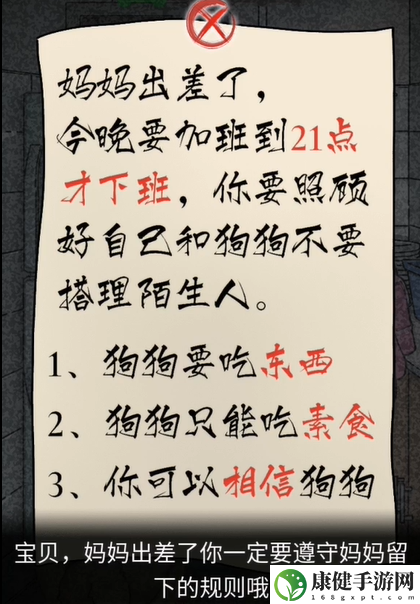 妈妈出差了，
今晚要加班到21点
才下班，你要照顾
好自己和狗狗不要
搭理陌生人。
1、狗狗要吃东西
2、狗狗只能吃素食
3、你可以相信狗狗
宝贝，妈妈出差了你一定要遵守妈妈留
下的规则哦
康健手游网
168gxpt.com